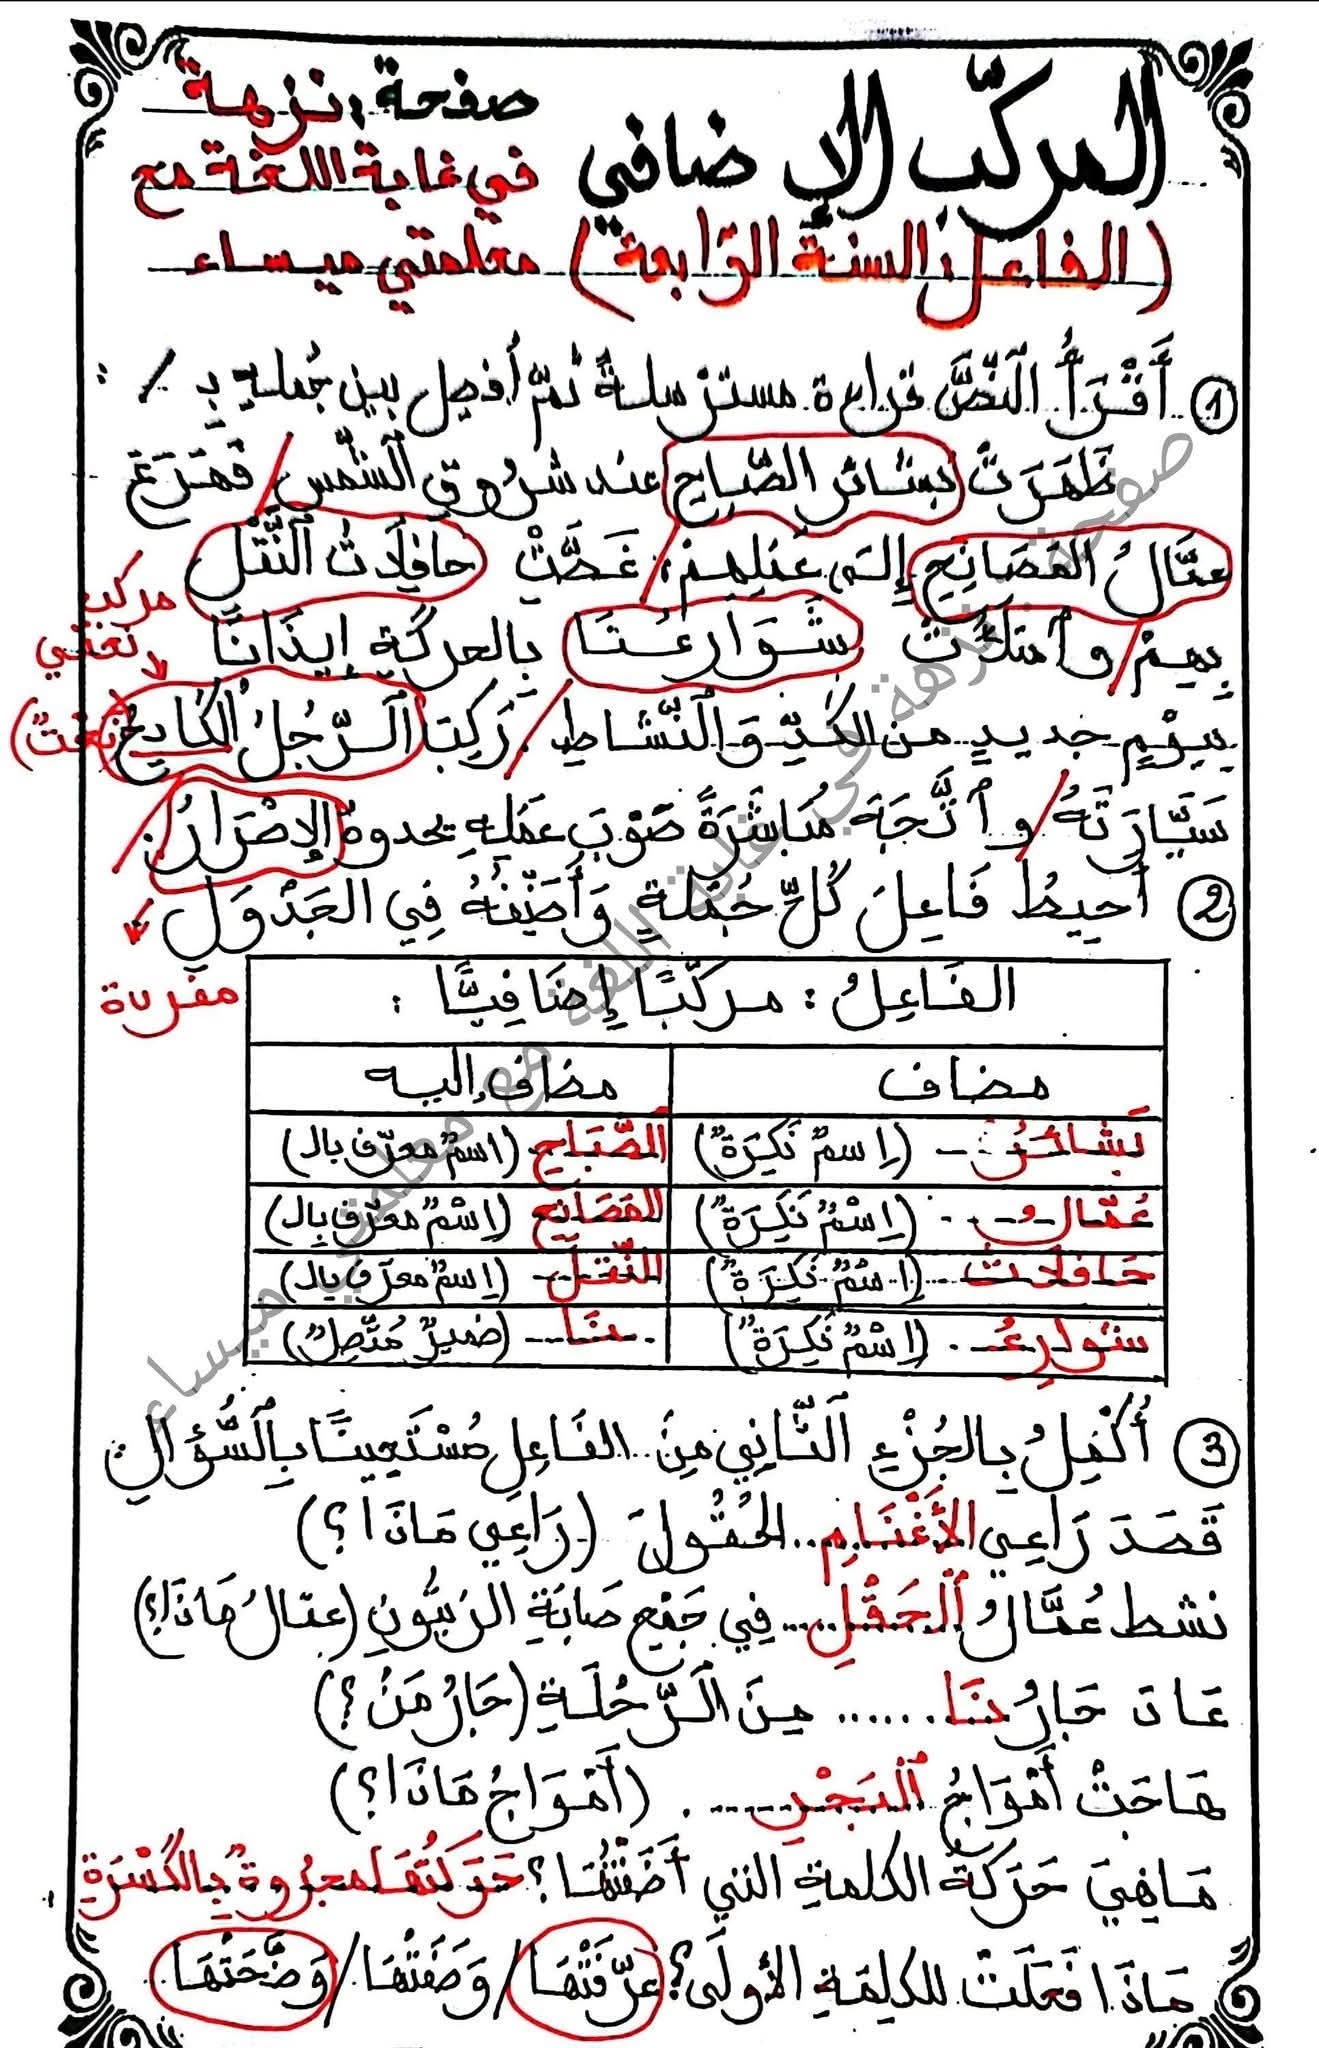 المركّب الإضافي
صفحة: نزهة
في غابة اللغة مع
معلمتي ميساء
(الفاعل: السنة الرّابعة)
① أَقْرَأُ النَّصَّ قراءة مسترسلة ثمّ أفصل بين جمله بـ / :
ظَهَرَتْ بشائر الصَّبَاحِ عند شروق الشَّمس / فَهَرَعَ
عمَّالُ المَصَانِعِ إلى عَمَلِهِمْ / غَصَّتْ حافلاتُ النَّقْلِ
بِهِمْ / وامتلأت شَوَارِعُنَا بالحركة إيذَانًا
بِيَوْمٍ جديدٍ من الكدِّ وَالنَّشاطِ / رَكِبَ الرَّجُلُ الكَادِحُ
سَيَّارَتَهُ / و اتَّجَهَ مُبَاشَرَةً صَوْبَ عَمَلِهِ يحدوهُ الإصْرَارُ .
مركب نعتي
(نعتٌ)
② أُحِيطُ فَاعِلَ كُلِّ جُمْلَةٍ وَأُصَنِّفُهُ فِي الجَدْوَلِ
مفردة
الفَاعِلُ : مركّبًا إِضَافِيًّا :
مضاف مضاف إليه
بشائرُ (اِسمٌ نَكِرَةٌ) الصَّبَاحِ (اسمٌ معرّف بال)
عُمَّالُ (اِسْمٌ نَكِرَةٌ) المَصَانِعِ (اِسْمٌ معرّف بِال)
حَافلاتُ (اِسْمٌ نَكِرَةٌ) النَّقلِ (اِسمٌ معرّف بال)
شوارِعُ (اِسْمٌ نَكِرَةٌ) نَا (ضميرٌ مُتَّصِلٌ)
③ أُكْمِلُ بِالجُزْءِ الثَّانِي مِنَ الفَاعِلِ مُسْتَعِينًا بِالسُّؤَالِ
قَصَدَ رَاعِي الأَغْنَامِ الحُقُولَ (رَاعِي مَاذَا ؟)
نشط عُمَّالُ الحَقْلِ فِي جَمْعِ صَابَةِ الزَّيْتُونِ (عمّالُ مَاذَا؟)
عَادَ جَارُنَا ...... مِنَ الرِّحْلَةِ (جَارُ مَنْ ؟)
هَاجَتْ أَمْوَاجُ البَحْرِ ..... . (أَمْوَاجُ مَاذَا ؟)
مَا هِيَ حَرَكَةُ الكلمةِ التي أَضَفْتُهَا ؟ حَرَكَتُهَا مجرُورةٌ بِالكَسْرَةِ
مَاذَا فَعَلَتْ للكلِمَةِ الأُولَى؟ عَرَّفَتْهَا / وَصَفَتْهَا / وَضَّحَتْهَا
صفحة نزهة في غابة اللغة مع معلمتي ميساء